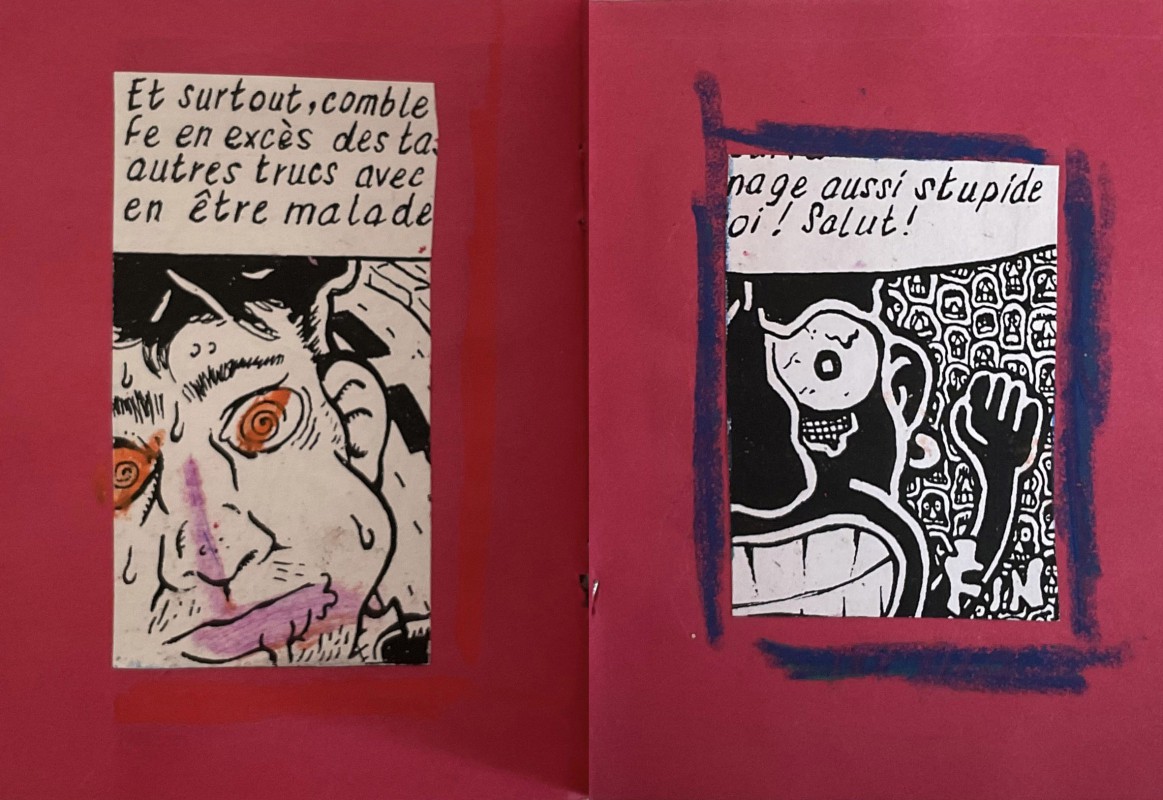 Et surtout, comble
fe en excès des ta
autres trucs avec
en être malade
nage aussi stupide
oi ! Salut !
FIN